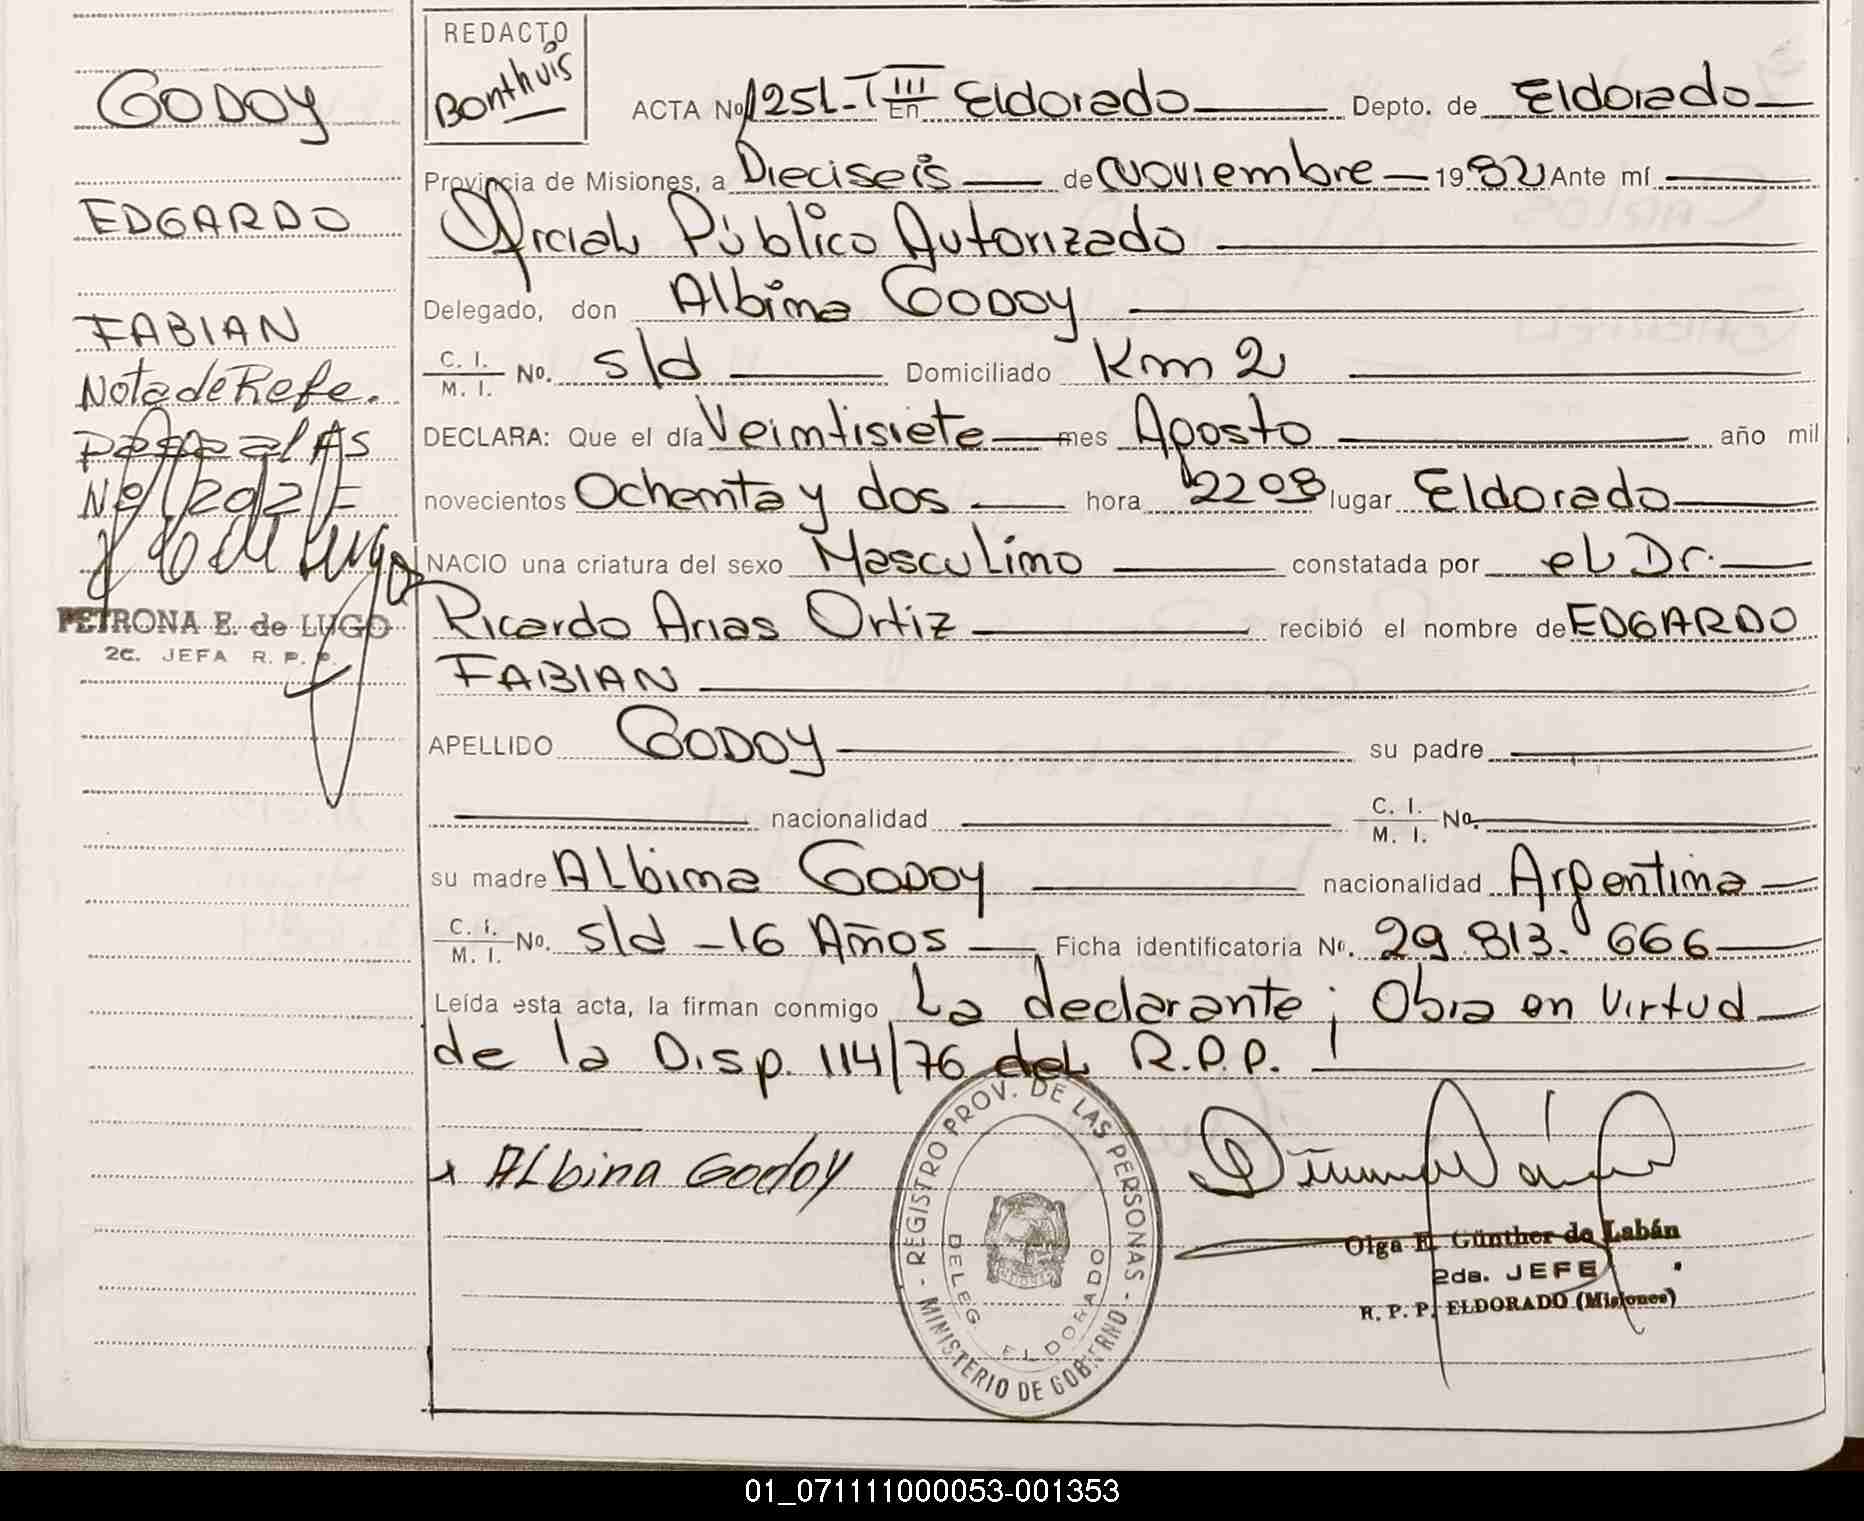 GODOY
EDGARDO
FABIAN
Nota de Refe.
al As
Nº 1202
PETRONA E. de LUGO
2C. JEFA R. P. P.
REDACTO
Bonthuis
ACTA No 1251-T III En Eldorado Depto. de Eldorado
Provincia de Misiones, a Dieciseis de Noviembre 1982 Ante mí
Oficial Público Autorizado
Delegado, don Albina GODOY
C. I. / M. I. No. s/d Domiciliado Km 2
DECLARA: Que el día Veintisiete mes Agosto año mil
novecientos Ochenta y dos hora 2208 lugar Eldorado
NACIO una criatura del sexo Masculino constatada por el Dr.
Ricardo Arias Ortiz recibió el nombre de EDGARDO
FABIAN
APELLIDO GODOY su padre
nacionalidad C. I. / M. I. No.
su madre Albina GODOY nacionalidad Argentina
C. I. / M. I. No. s/d - 16 Años Ficha identificatoria No. 29.813.666
Leída esta acta, la firman conmigo La declarante; Obra en virtud
de la Disp. 114/76 del R.P.P.
REGISTRO PROV. DE LAS PERSONAS - MINISTERIO DE GOBIERNO -
DELEG. ELDORADO
Albina Godoy
Olga E. Günther de Labán
2da. JEFE
R. P. P. ELDORADO (Misiones)
01_071111000053-001353